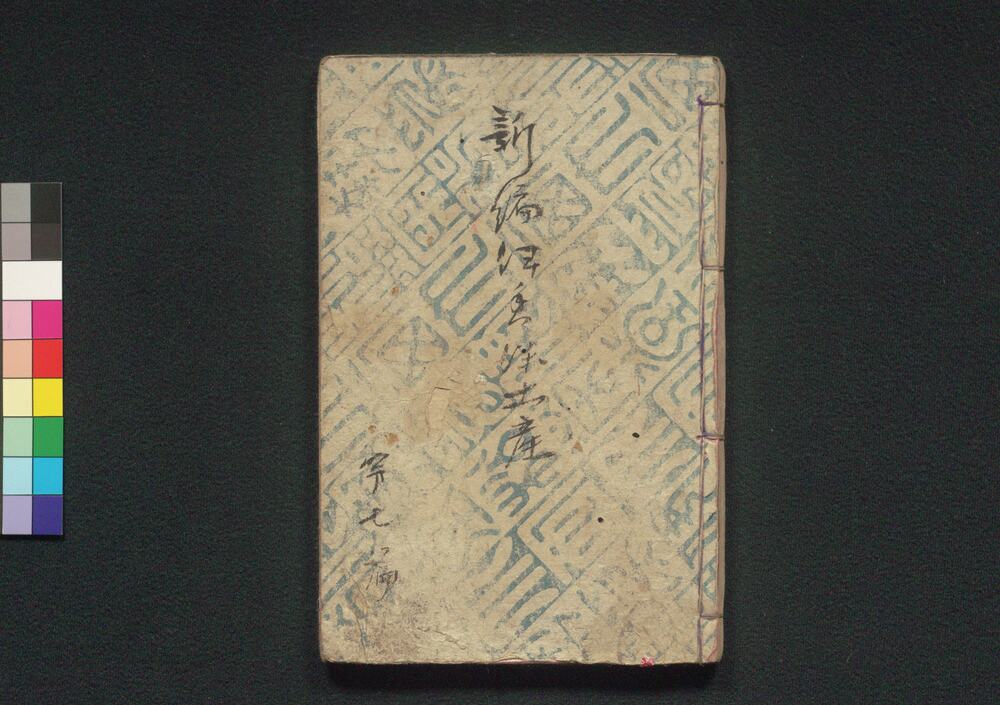 新編伊香保土産
第七編